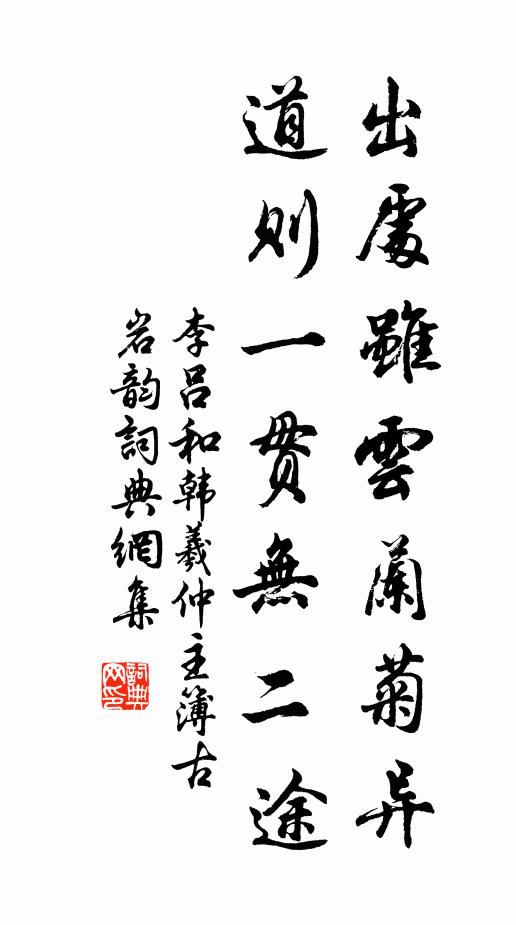 出處雖雲蘭菊异
道則一貫無二途
李呂和韩羲仲主簿古
岩韵詞典網集
詞典網印